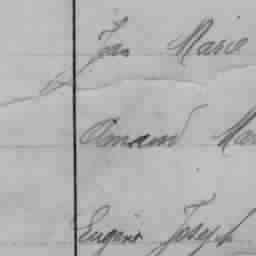 Jean Marie
Armand Mar
Eugène Joseph